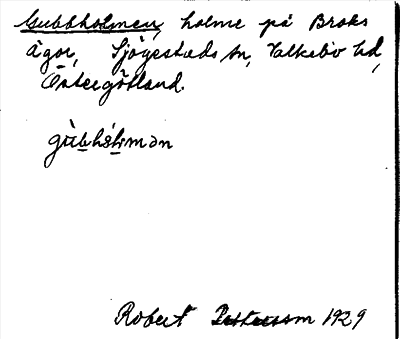 Gubbholmen, holme på Broks
ägor, Sjögestads sn, Valkebo hd,
Östergötland.
gùbhålmən
Robert Pettersson 1929